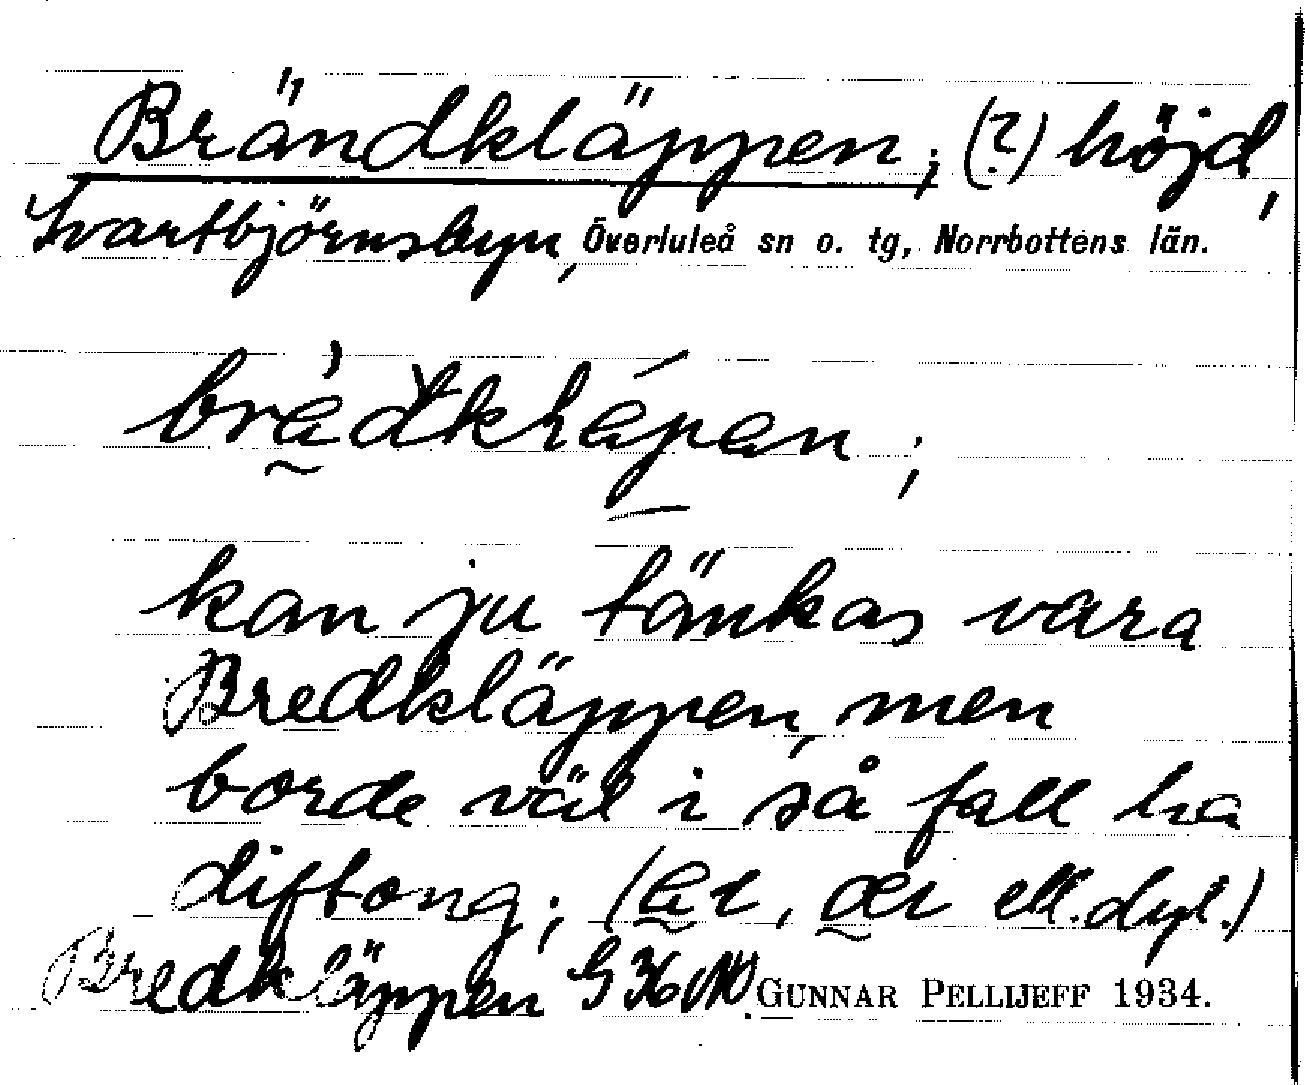 Brändkläppen; (?) höjd,
Svartbjörnsbyn, Överluleå sn o. tg, Norrbottens län.
kan ju tänkas vara
Bredkläppen, men
borde väl i så fall ha
diftong; ell. dyl.)
Bredkläppen GUNNAR PELLIJEFF 1934.